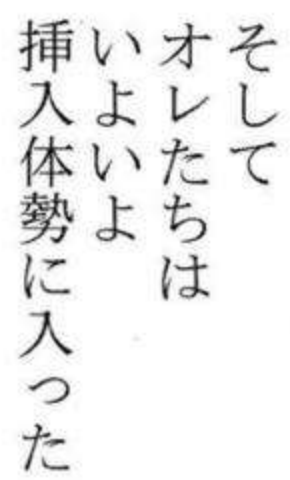 そして
オレたちは
いよいよ
挿入体勢に入った